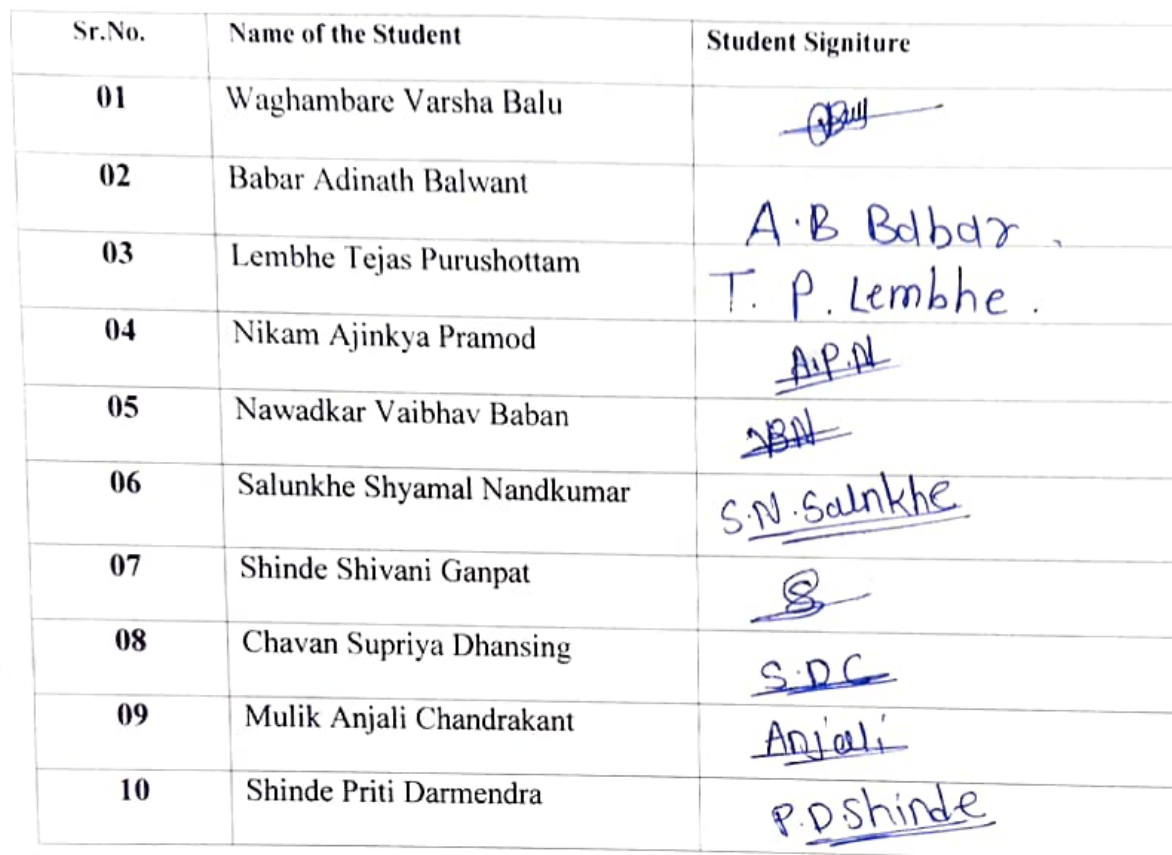 Sr.No. Name of the Student Student Signiture
01 Waghambare Varsha Balu
02 Babar Adinath Balwant A.B Babar.
03 Lembhe Tejas Purushottam T. P. Lembhe.
04 Nikam Ajinkya Pramod A.P.N
05 Nawadkar Vaibhav Baban VBN
06 Salunkhe Shyamal Nandkumar S.N.Salnkhe
07 Shinde Shivani Ganpat S
08 Chavan Supriya Dhansing S.D.C
09 Mulik Anjali Chandrakant Anjali
10 Shinde Priti Darmendra P.D.Shinde